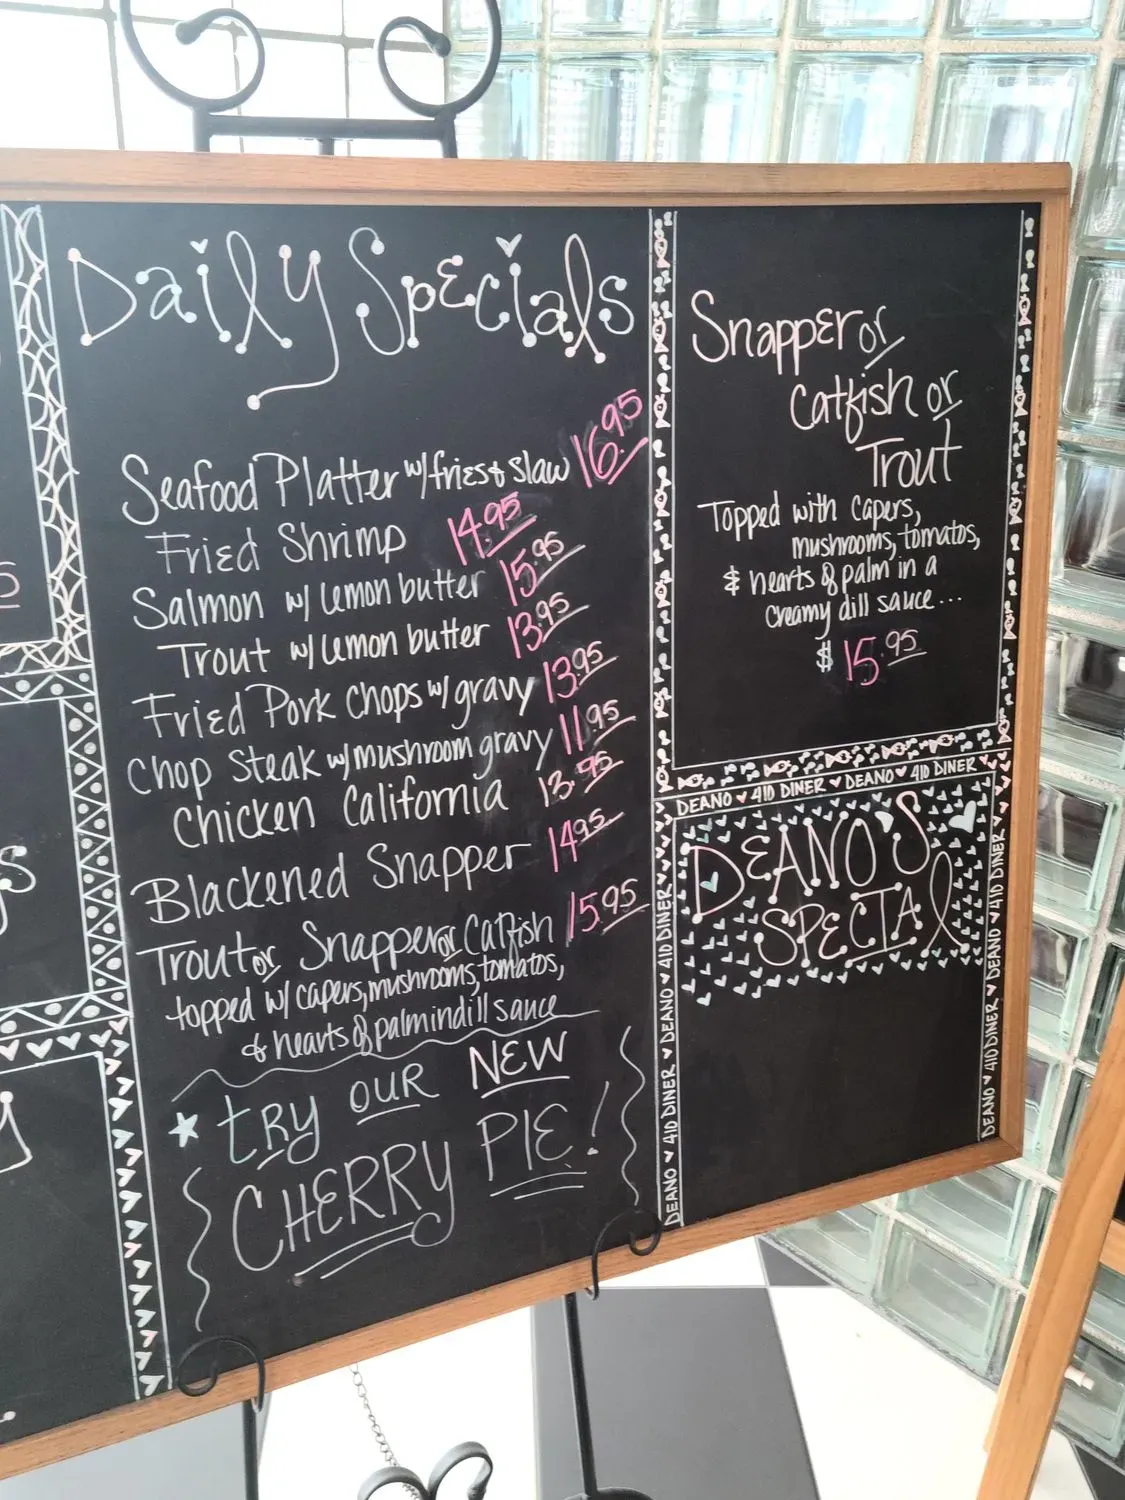 Daily Specials
Seafood Platter w/ fries & slaw 16.95
Fried Shrimp 14.95
Salmon w/ lemon butter 15.95
Trout w/ lemon butter 13.95
Fried Pork Chops w/ gravy 13.95
Chop Steak w/ mushroom gravy 11.95
Chicken California 13.95
Blackened Snapper 14.95
Trout or Snapper or Catfish 15.95
topped w/ capers, mushrooms, tomatos,
& hearts of palm in dill sauce
try our NEW
CHERRY PIE!
Snapper or
Catfish or
Trout
Topped with capers,
mushrooms, tomatos,
& hearts of palm in a
creamy dill sauce...
$15.95
DEANO ♥ 410 DINER ♥ DEANO ♥ 410 DINER
DEANO'S
SPECIAL
DEANO ♥ 410 DINER ♥ DEANO ♥ 410 DINER
DEANO ♥ 410 DINER ♥ DEANO ♥ 410 DINER